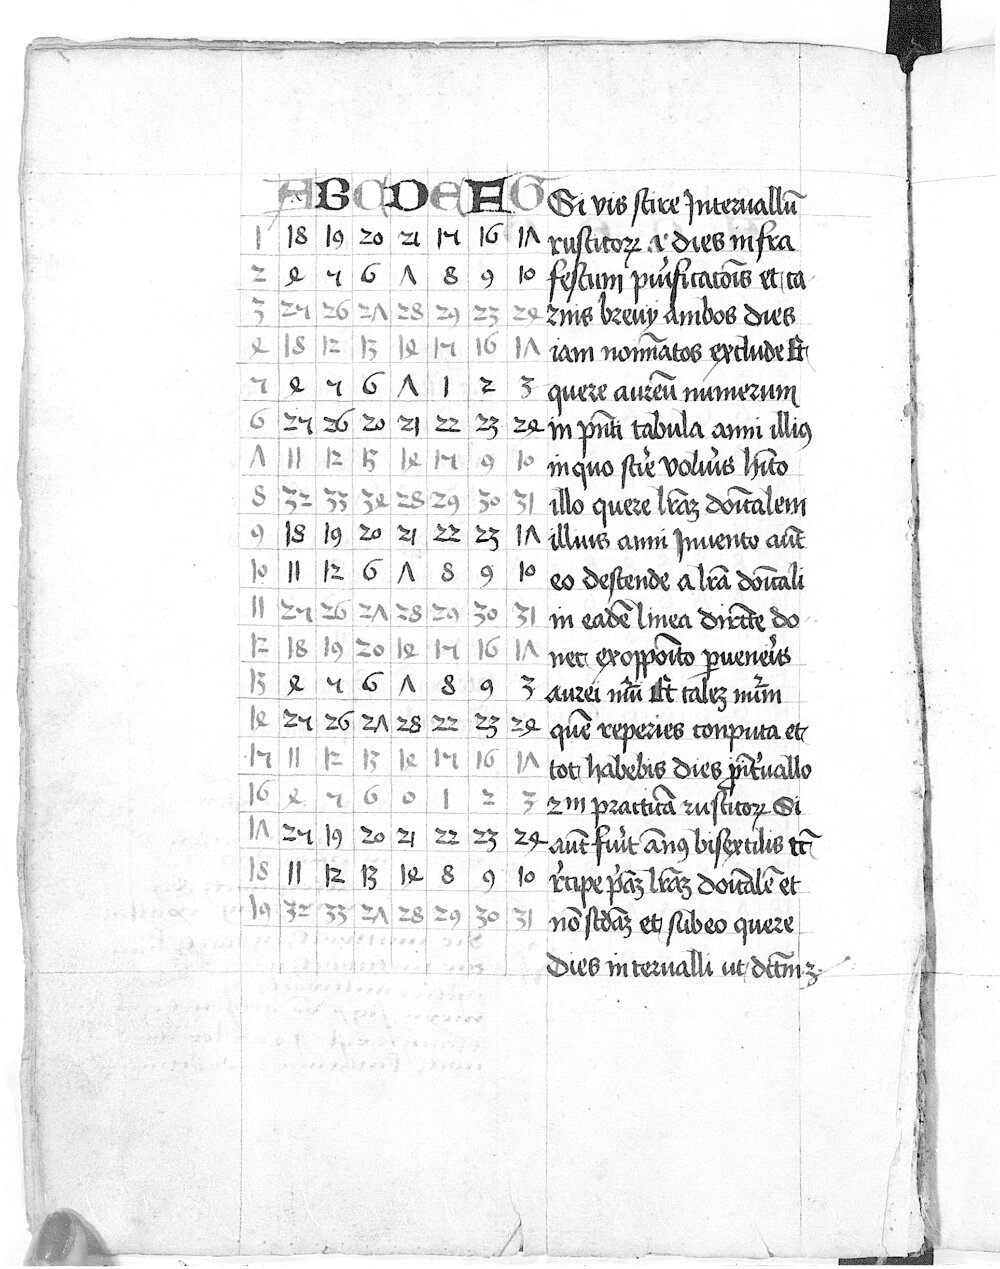 A B C D E F G
1 18 19 20 21 15 16 17
2 4 5 6 7 8 9 10
3 25 26 27 28 29 23 24
4 18 12 13 14 15 16 17
5 4 5 6 7 1 2 3
6 25 26 20 21 22 23 24
7 11 12 13 14 15 9 10
8 32 33 34 28 29 30 31
9 18 19 20 21 22 23 17
10 11 12 6 7 8 9 10
11 25 26 27 28 29 30 31
12 18 19 20 14 15 16 17
13 4 5 6 7 8 9 3
14 25 26 27 28 22 23 24
15 11 12 13 14 15 16 17
16 4 5 6 0 1 2 3
17 25 19 20 21 22 23 24
18 11 12 13 14 8 9 10
19 32 33 27 28 29 30 31
Si vis scire Interuallū
rusticoꝝ dies infra
festum et ca
rnis breuy ambos dies
iam nomīatos exclude Et
quere aureū numerum
in pn̄ti tabula anni illiꝰ
in quo scir̄e voluīs hīto
illo quere lr̄aꝫ domīcalem
illius anni Inuento aūt
eo descende a lr̄a domīcali
in eadē linea dir̄cte do
nec ex opposito ꝑueneīs
aurei nūi Et talem nūm
quē reperies conputa et
tot habebis dies int̄uallo
in practica rusticoꝝ Si
aūt fuīt annꝰ bisextilis
r̄cipe pm̄aꝫ lr̄aꝫ domīcalē et
nō scd̄aꝫ et sub eo quere
Dies interualli ut